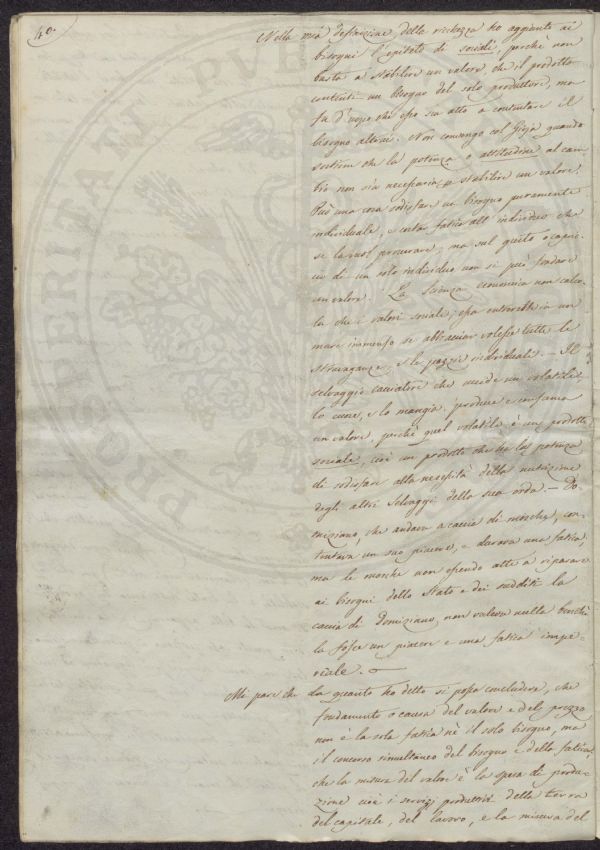 40.
Nella mia definizione della ricchezza ho aggiunto ai
bisogni l'epiteto di sociali, perchè non
basta a stabilire un valore, che il prodotto
contenti un bisogno del solo produttore, ma
fa d'uopo che esso sia atto a contentare il
bisogno altrui. Non convengo col Gioja quando
sostiene che la potenza o attitudine al cam-
bio non sia necessaria a stabilire un valore.
Può una cosa sodisfare un bisogno puramente
individuale, e costar fatica all'individuo che
se la vuol procurare; ma sul gusto o capric-
cio di un solo individuo non si può fondare
un valore. La Scienza economica non calco-
la che i valori sociali; essa entrerebbe in un
mare immenso se abbracciar volesse tutte le
stravaganze, e le pazzie individuali. – Il
selvaggio cacciatore che uccide un volatile,
lo cuoce, e lo mangia, produce e consuma
un valore, perchè quel volatile è un prodotto
sociale, cioè un prodotto che ha la potenza
di sodisfare alla necessità della nutrizione
degli altri Selvaggi della sua orda. – Do-
miziano, che andava a caccia di mosche, con-
tentava un suo piacere, e durava una fatica;
ma le mosche non essendo atte a riparare
ai bisogni dello Stato e dei sudditi la
caccia di Domiziano, non valeva nulla benchè
la fosse un piacere e una fatica impe-
riale.
Mi pare che da quanto ho detto si possa concludere, che
fondamento o causa del valore e del prezzo
non è la sola fatica nè il solo bisogno, ma
il concorso simultaneo del bisogno e della fatica;
che la misura del valore è la spesa di produ-
zione cioè i servigi produttivi della terra
del capitale, del lavoro, e la misura del